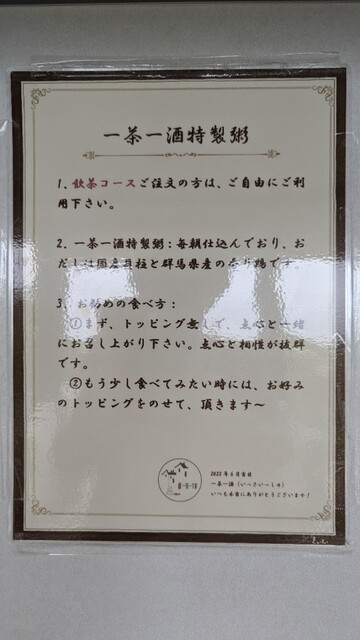 一茶一酒特製粥
1、飲茶コースご注文の方は、ご自由にご利
用下さい。
2、一茶一酒特製粥：毎朝仕込んでおり、お
だしは国産貝柱と群馬県産の赤り鶏です。
3、お勧めの食べ方：
①まず、トッピング無しで、点心と一緒
にお召し上がり下さい。点心と相性が抜群
です。
②もう少し食べてみたい時には、お好み
のトッピングをのせて、頂きます～
2022年6月吉日
一茶一酒（いっさいっしゅ）
いつも本当にありがとうございます！